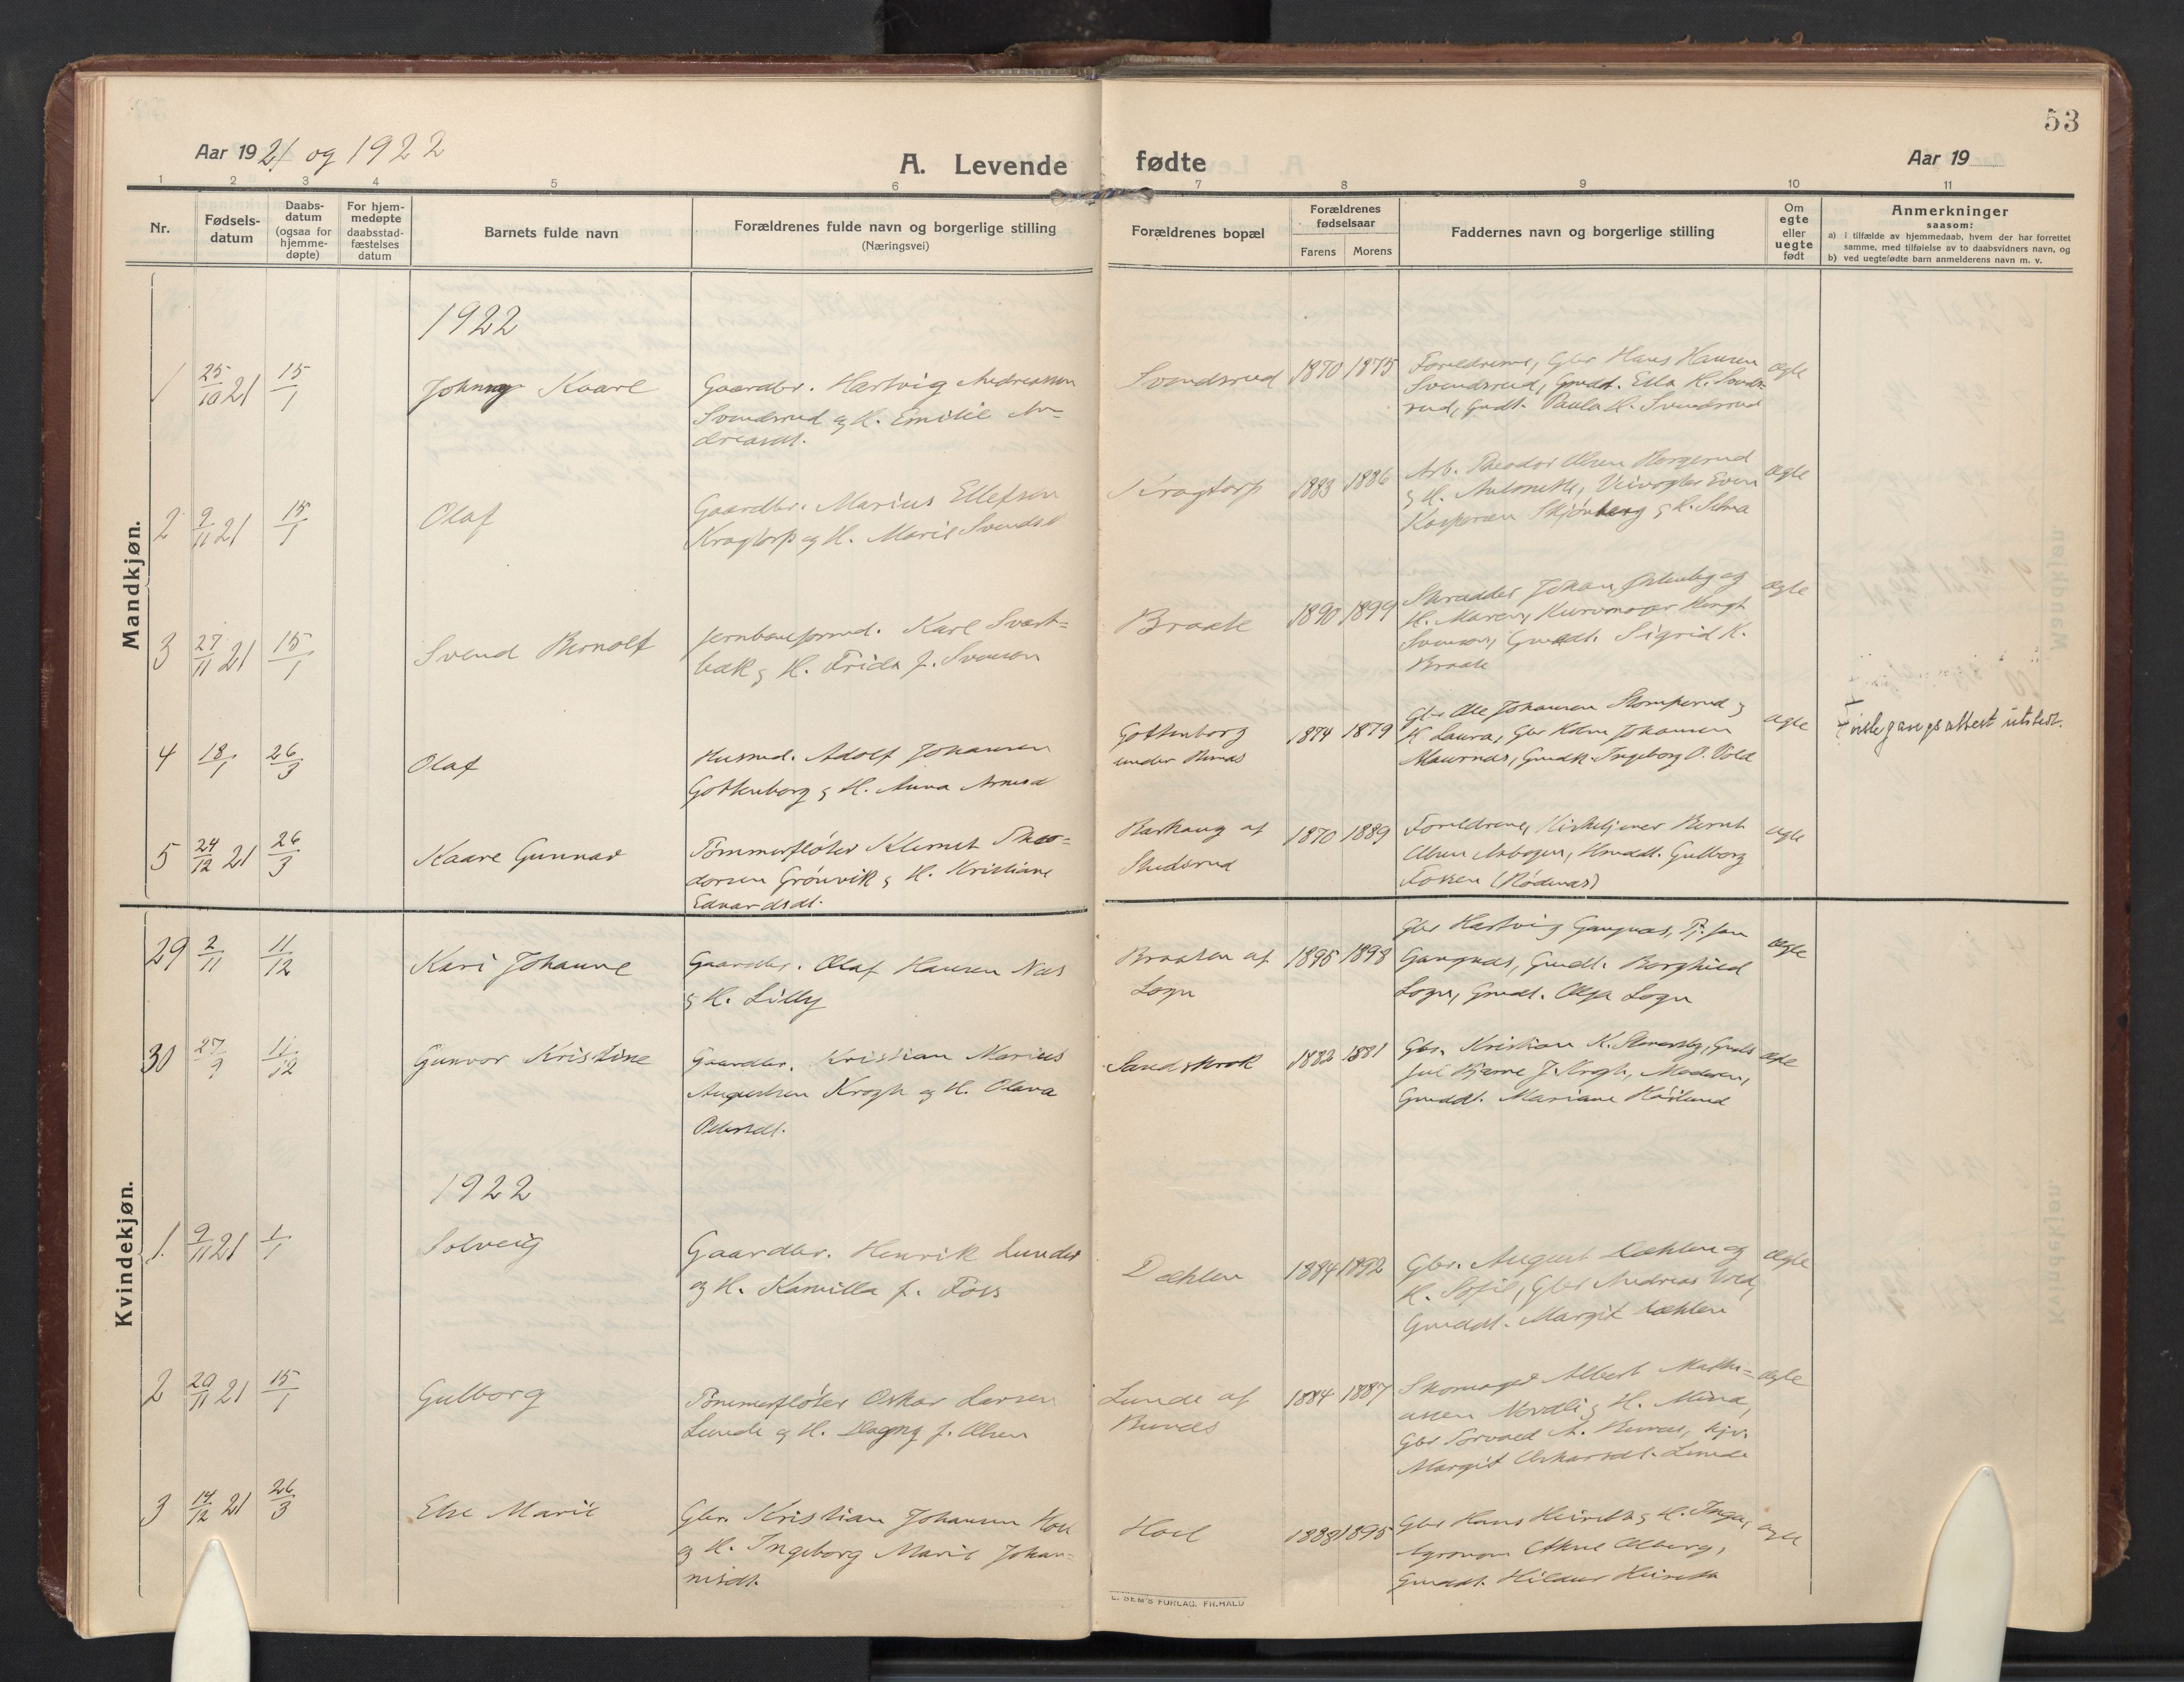 53
Aar 1921 og 1922
A. Levende fødte
Aar 19
1 2 3 4 5 6 7 8 9 10 11
Nr.
Fødsels-
datum
Daabs-
datum
(ogsaa for
hjemme-
døpte)
For hjem-
medøpte
daabsstad-
fæstelses
datum
Barnets fulde navn
Forældrenes fulde navn og borgerlige stilling
(Næringsvei)
Forældrenes bopæl
Forældrenes
fødselsaar
Farens Morens
Faddernes navn og borgerlige stilling
Om
egte
eller
uegte
født
Anmerkninger
saasom:
a) i tilfælde av hjemmedaab, hvem der har forrettet
samme, med tilføielse av to daabsvidners navn, og
b) ved uegtefødte barn anmelderens navn m. v.
Mandkjøn.
1922
1 25/10 21 15/1 Johnny Kaare
Gaardbr. Hartvig Andreassen
Svendsrud og H. Emilie An-
dreasdt.
Svendsrud 1870 1875
Foreldrene, Gbr Hans Hansen
Svendsrud, Gmdt. Ella H. Svends-
rud, Gmdt. Paula H. Svendsrud
ægte
2 9/11 21 15/1 Olaf
Gaardbr. Marius Ellefsen
Kragtorp og H. Marie Svendsd
Kragtorp 1883 1886
Arb. Theodor Olsen
& H. Antonette, Even
Kaspersen Skjønberg & H.
ægte
3 27/11 21 15/1 Svend Bernolf
Jernbaneformd. Karl Svart-
bæk & H. Frida f. Svensen
Braate 1890 1899
Skrædder Johan og
H. Maren, Kurvmager
Svensen, Gmdt. Sigrid K.
Braate
ægte
4 18/1 26/3 Olaf
Husmd. Adolf Johansen
Gottenborg & H. Anna Arnesd
Gottenborg
under
1874 1879
Gbr Ole Johansen &
H. Laura, Gbr Johansen
Gmdt. Ingeborg O. Vold
ægte
utstedt.
5 24/12 21 26/3 Kaare Gunnar
Tømmerfløter Klemet Theo-
dorsen Grønvik & H. Kristiane
Edvardsdt.
af
1870 1889
Foreldrene, Kirketjener Bernt
Olsen Gulborg
Fossen (Rødenas)
ægte
Kvindekjøn.
29 2/11 11/12 Kari Johanne
Gaardbr. Olaf Hansen Næs
& H. Lilly
Braaten af
Sogn
1895 1898
Gbr Hartvig Gangnæs,
Gangnæs, Gmdt. Borghild
Sogn, Gmdt. Olga Sogn
ægte
30 27/9 11/12 Gunvor Kristine
Gaardbr. Kristian Marius
Augustsen Krogh og H. Olava
Petersdt.
Sandskrok 1882 1881
Gbr. Kristian K.
Bjarne J. Krogh, Moderen,
Gmdt. Mariane
ægte
1922
1. 9/11 21 1/1 Solveig
Gaardbr. Henrik Lunder
og H. Kamilla f. Foss
Dæhlen 1884 1892
Gbr. August Dæhlen og
H. Sofie, Gbr Andreas Vold,
Gmdt. Margit Dæhlen
ægte
2 20/11 21 15/1 Gulborg
Tømmerfløter Oskar Larsen
Lunde og H. Dagny f. Olsen
Lunde af
1884 1887
Skomager Albert Mathi-
assen Nordli & H. Mina,
Gbr Torvald A.
Margit Oskarsdt. Lunde
ægte
3 14/12 21 26/3 Else Marie
Gbr. Kristian Johansen Hoel
og H. Ingeborg Marie Johan-
nesdt.
Hoel 1888 1895
Gbr Hans & H. Inga,
Agronom
Gmdt. Hildur
ægte
E. SEM'S FORLAG. FR.HALD